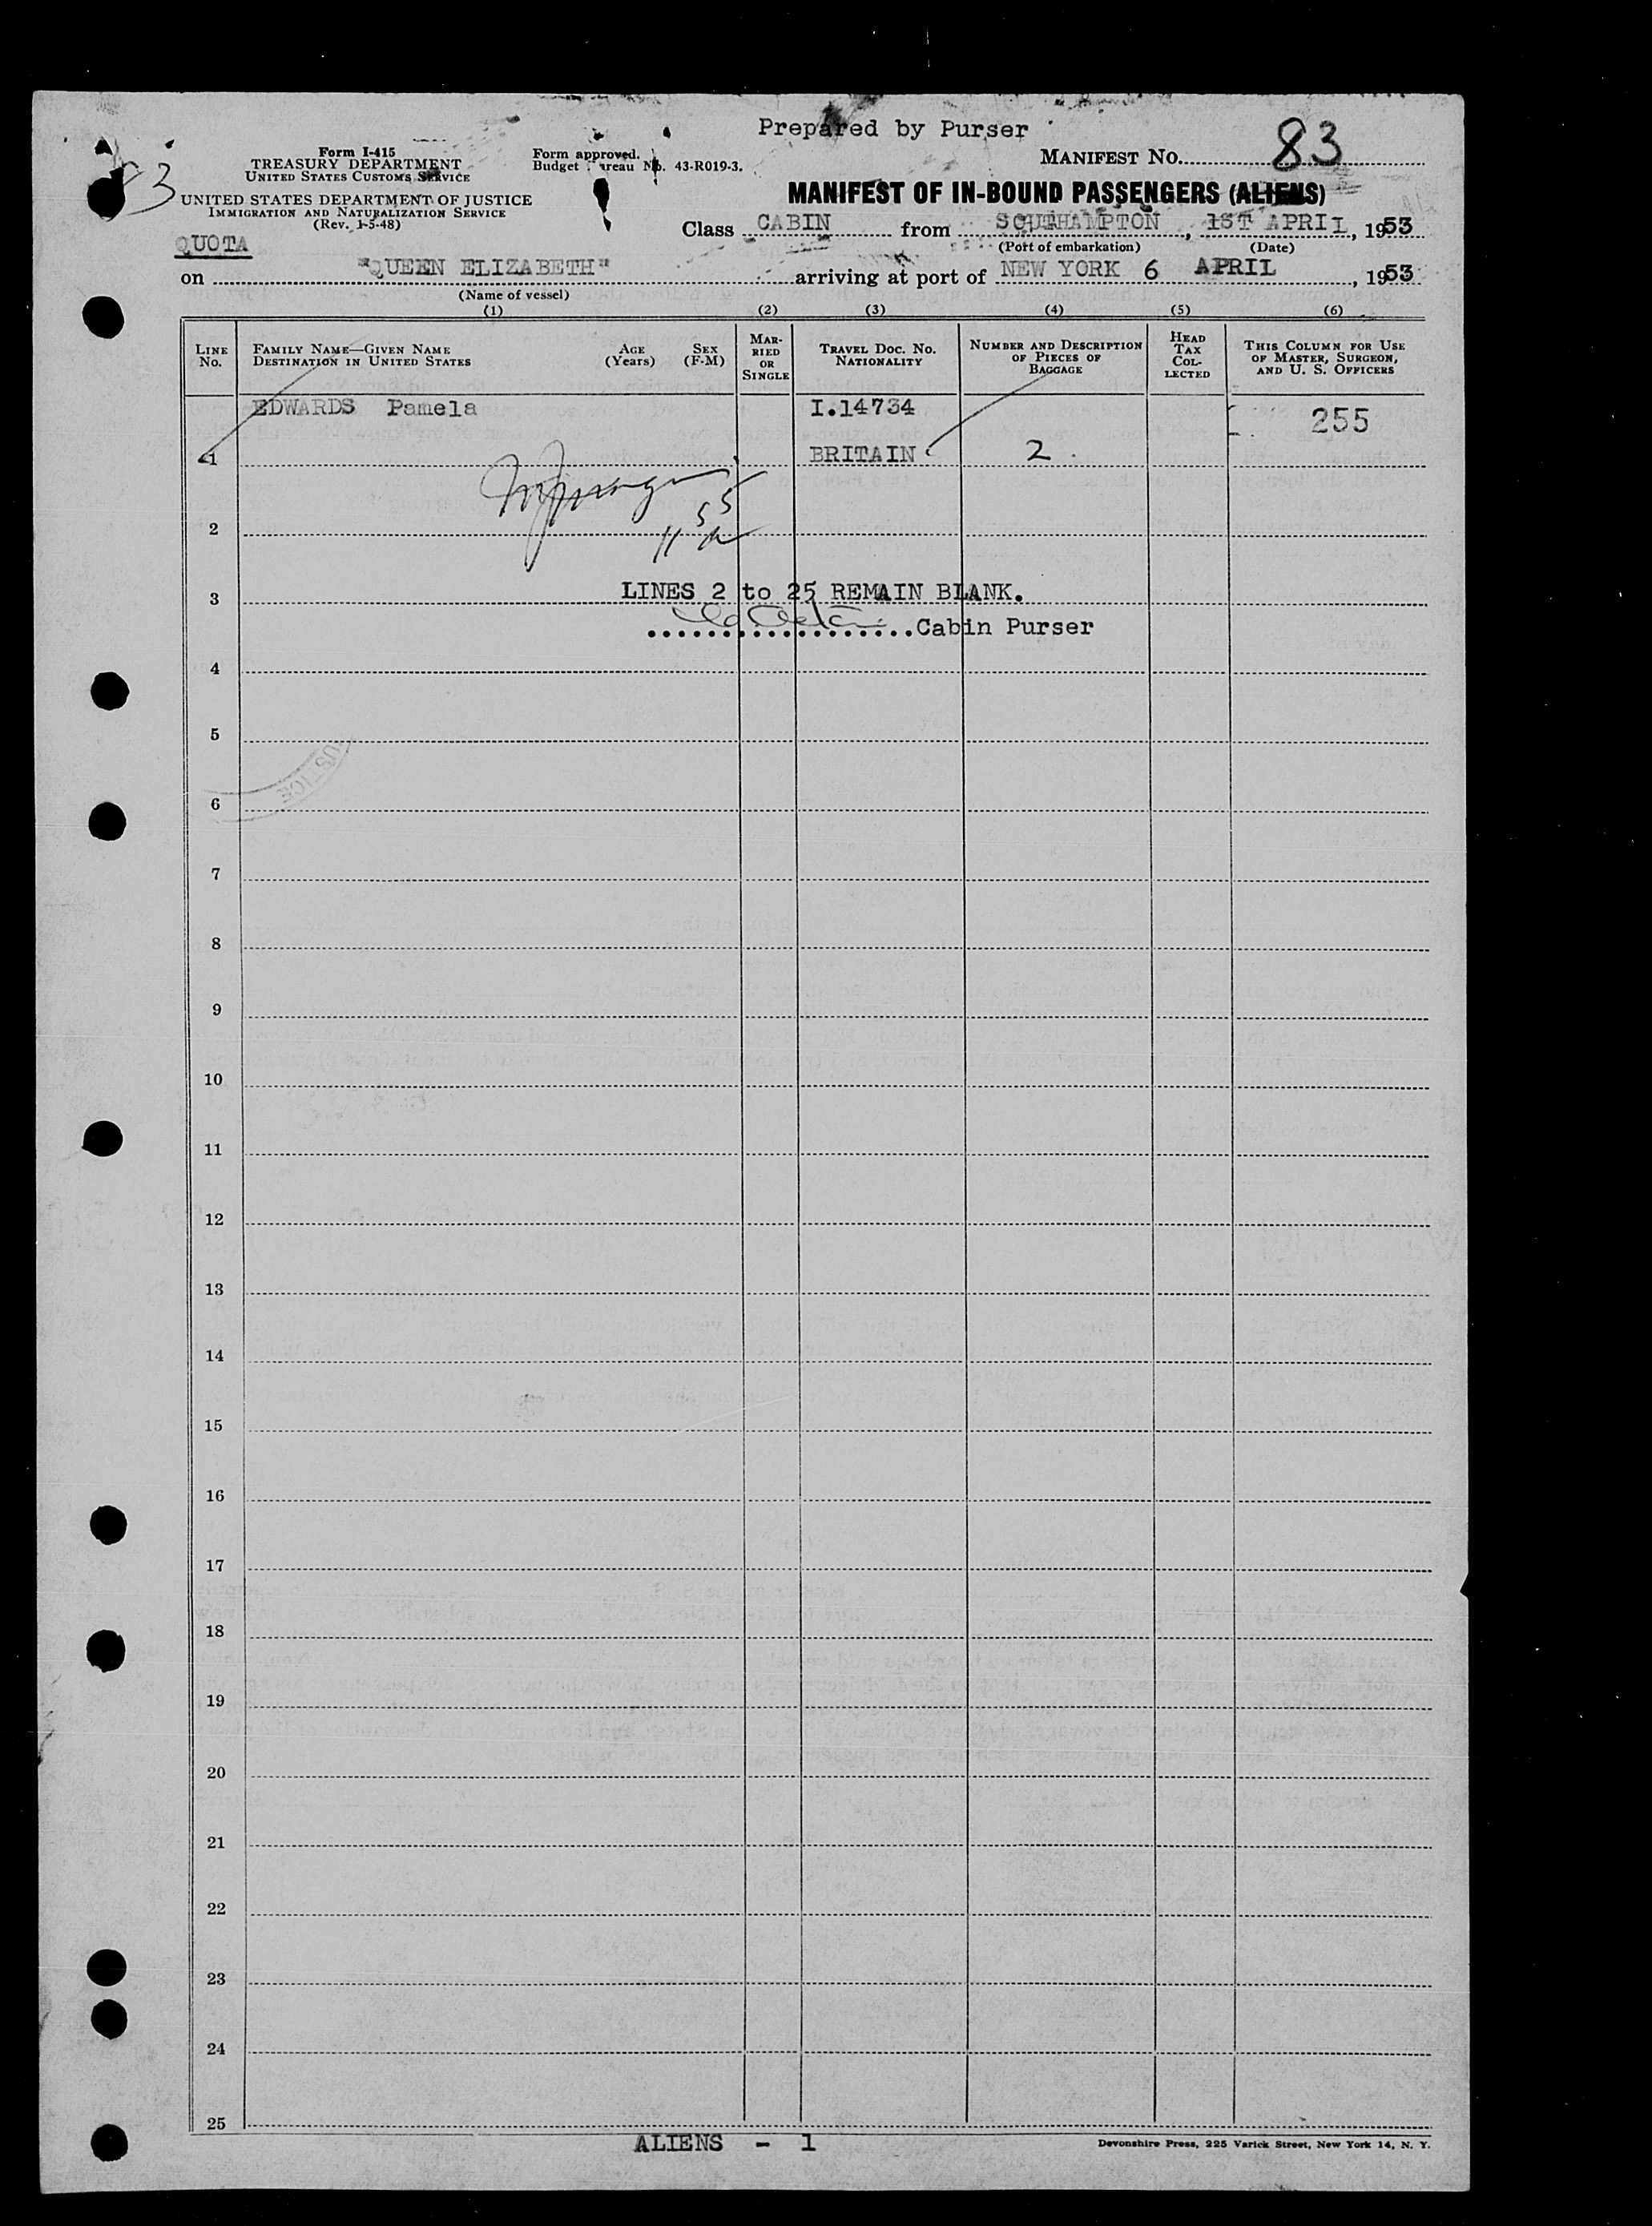 Prepared by Purser
83
Form I-415
TREASURY DEPARTMENT
UNITED STATES CUSTOMS SERVICE
UNITED STATES DEPARTMENT OF JUSTICE
IMMIGRATION AND NATURALIZATION SERVICE
(Rev. 1-5-48)
Form approved.
Budget Bureau No. 43-R019-3.
MANIFEST NO. 83
MANIFEST OF IN-BOUND PASSENGERS (ALIENS)
QUOTA
Class CABIN from SOUTHAMPTON, 1ST APRIL, 1953
(Port of embarkation) (Date)
on "QUEEN ELIZABETH" arriving at port of NEW YORK 6 APRIL, 1953
(Name of vessel)
(1) (2) (3) (4) (5) (6)
LINE No. FAMILY NAME—GIVEN NAME DESTINATION IN UNITED STATES AGE (Years) SEX (F-M) MARRIED OR SINGLE TRAVEL DOC. NO. NATIONALITY NUMBER AND DESCRIPTION OF PIECES OF BAGGAGE HEAD TAX COLLECTED THIS COLUMN FOR USE OF MASTER, SURGEON, AND U. S. OFFICERS
EDWARDS Pamela I.14734 255
1 BRITAIN 2
2
LINES 2 to 25 REMAIN BLANK.
3
..................Cabin Purser
4
5
USTICE
6
7
8
9
10
11
12
13
14
15
16
17
18
19
20
21
22
23
24
25
ALIENS - 1
Devonshire Press, 225 Varick Street, New York 14, N. Y.